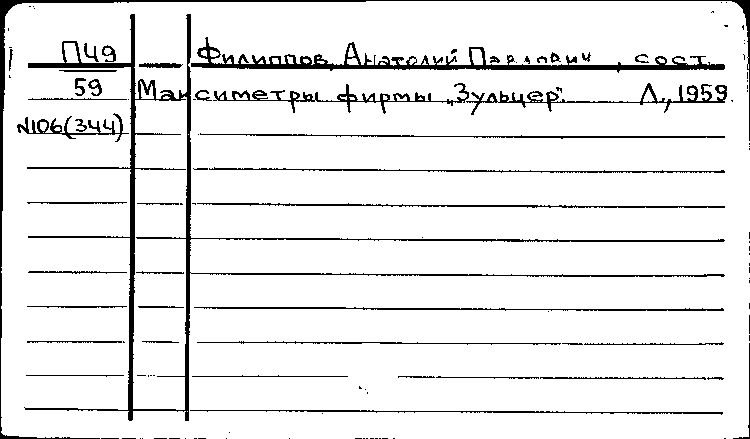 П49 Филиппов, Анатолий Павлович, сост.
59 Максиметры фирмы „Зульцер". Л., 1959.
N106(344)